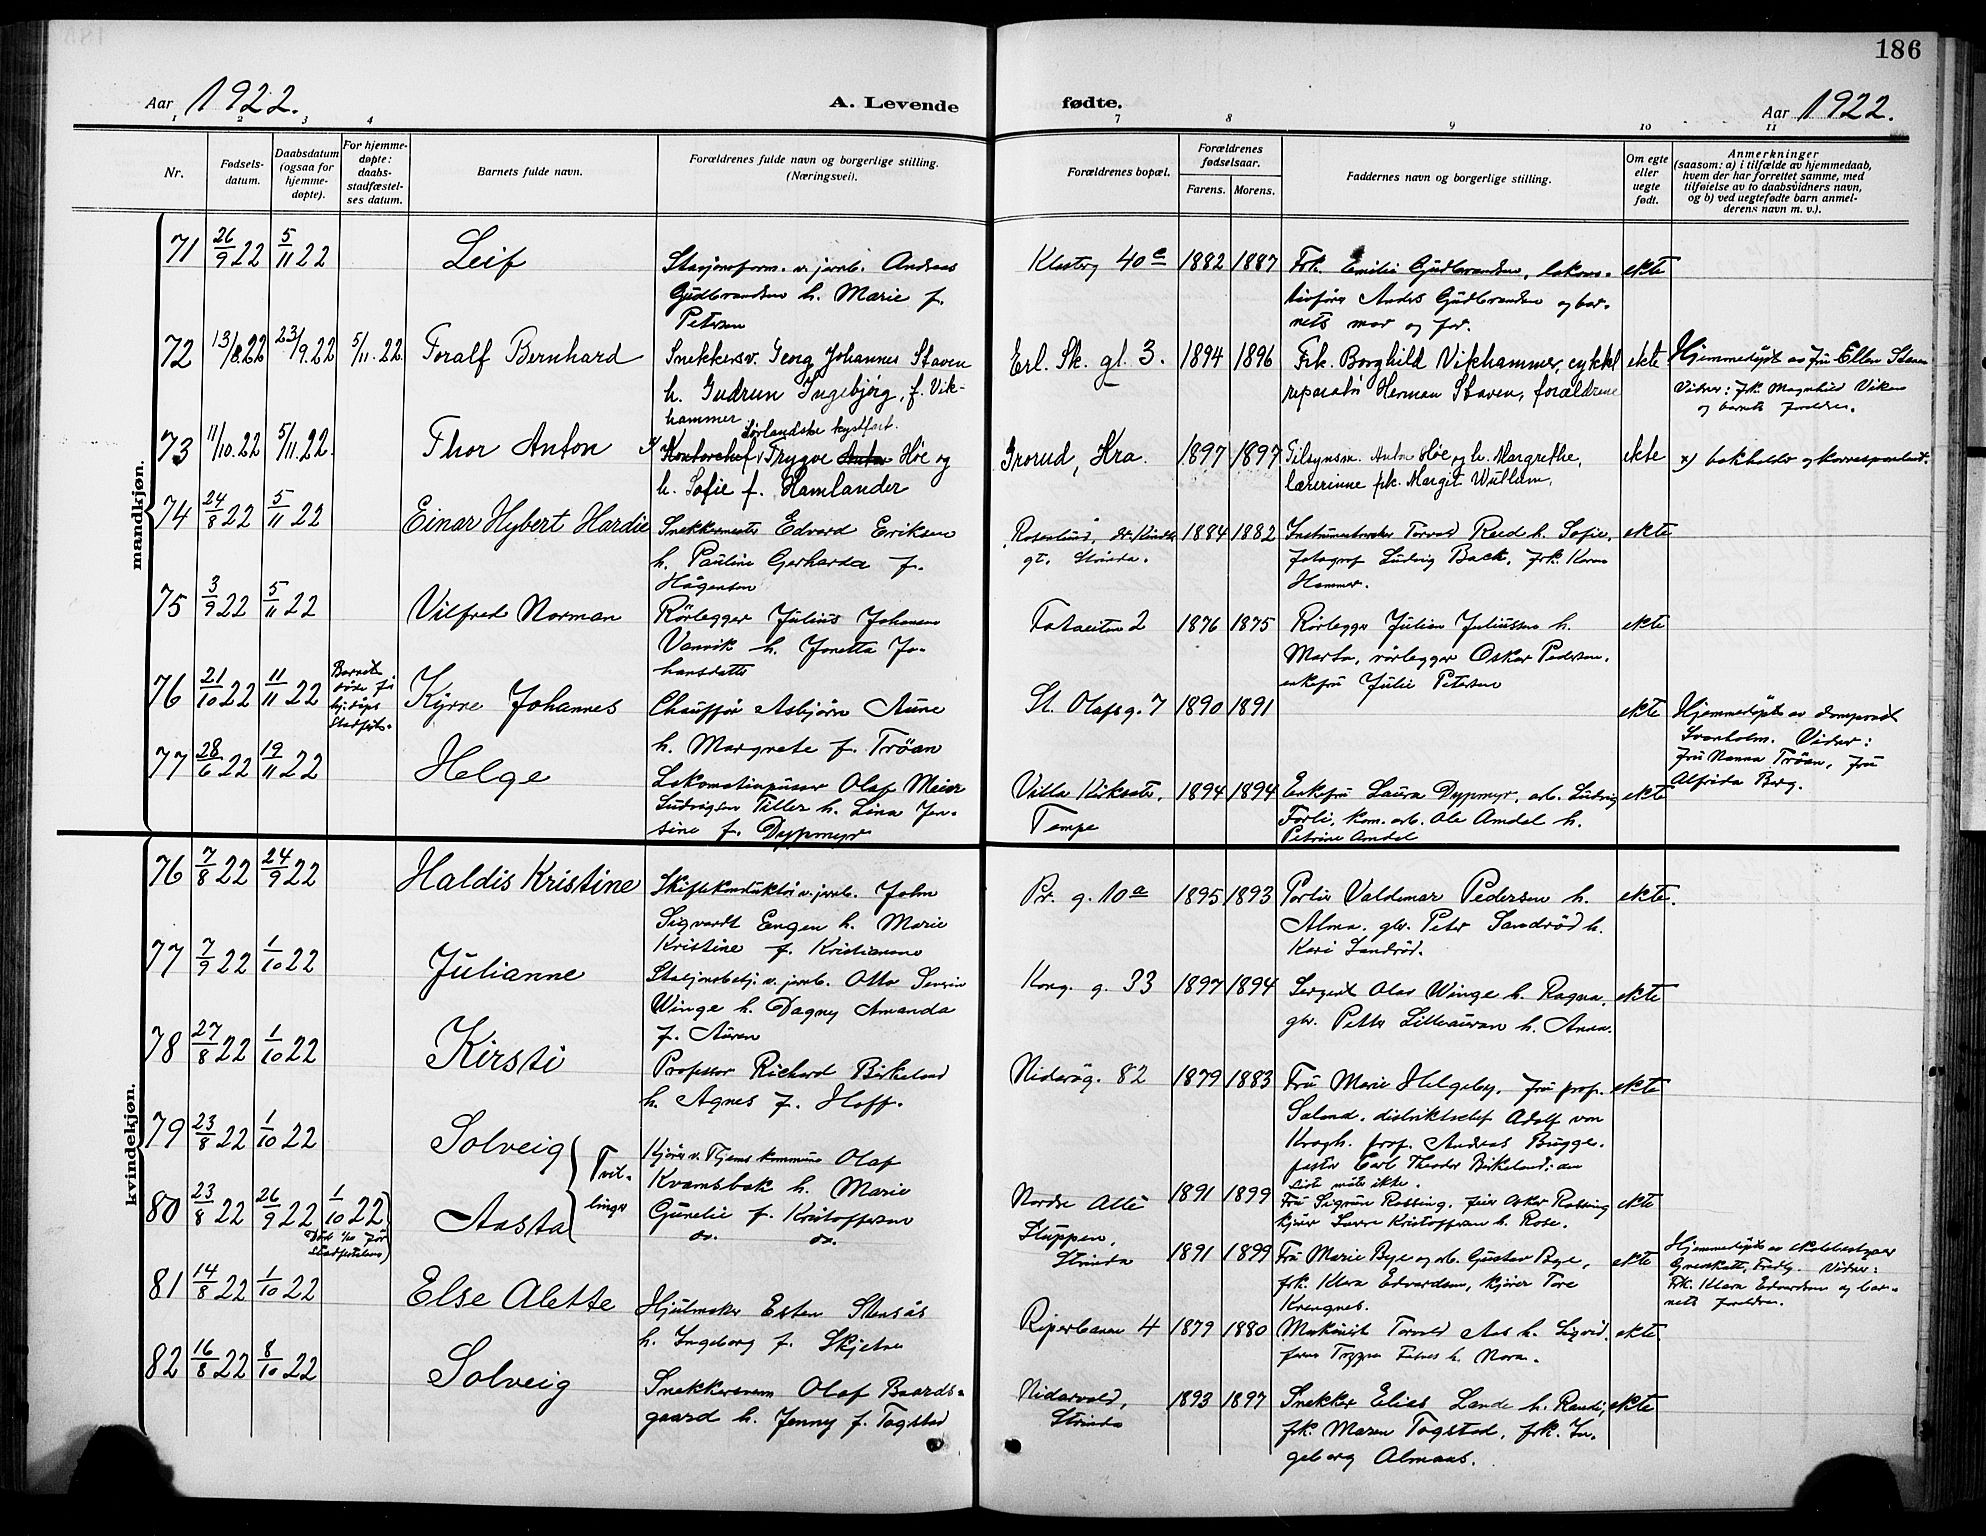 186
Aar 1922. A. Levende fødte. Aar 1922.
1 2 3 4 7 8 9 10 11
Nr.
Fødsels-
datum.
Daabsdatum
(ogsaa for
hjemme-
døpte).
For hjemme-
døpte:
daabs-
stadfæstel-
ses datum.
Barnets fulde navn.
Forældrenes fulde navn og borgerlige stilling.
(Næringsvei).
Forældrenes bopæl.
Forældrenes
fødselsaar.
Farens. Morens.
Faddernes navn og borgerlige stilling.
Om egte
eller
uegte
født.
Anmerkninger
(saasom: a) i tilfælde av hjemmedaab,
hvem der har forrettet samme, med
tilføielse av to daabsvidners navn,
og b) ved uegtefødte barn anmel-
derens navn m. v.).
mandkjøn.
71 26/9 22 5/11 22 Leif
Andreas
Gudbrandsen h. Marie f.
Petersen
40 c 1882 1887
Frk. Emilie Gudbrandsen,
Gudbrandsen og bar-
nets mor og far.
ekte
72 13/8 22 23/9 22 5/11 22 Toralf Bernhard
Snekkersv. Georg Johannes Staven
h. Gudrun Ingebjørg, f. Vik-
hammer
Erl. Sk. gl. 3. 1894 1896
Frk. Borghild Vikhammer, cykkel
reparatør Herman Staven, forældrene
ekte
Hjemmedøpt av fru Ellen Staven
Vidner: frk. Magnhild Viken
og barnets forældre.
73 11/10 22 5/11 22 Thor Anton
Sørlandske kystfart.
x) Kontorchef v. Trygve Anton Høe og
h. Sofie f. Hamlander
Grorud, Kra. 1897 1897
Tilsynsm. Anton Høe og h. Margrethe,
lærerinne frk. Marget Wullum.
ekte
x) bokholder og korrespondent.
74 24/8 22 5/11 22 Einar Hybert Hardie
Snekkermester Edvard Eriksen
h. Pauline Gerharda f.
Hågensen
Rosenlund,
gt. Strinda. 1884 1882
Torvald Reed h. Sofie,
fotograf Ludvig Back, frk. Karen
Hammer.
ekte
75 3/9 22 5/11 22 Vilfred Norman
Rørlegger Julius Johansen
Vanvik h. Jonetta Jo-
hansdatter
2 1876 1875
Rørlegger Julian Juliussen h.
Marta, rørlegger Oskar Pedersen,
enkefru Julie Petersen
ekte
76 21/10 22 11/11 22
Barnet
døde før
hj.døps
Stadfest.
Kyrre Johannes
Chauffør Asbjørn Aune
h. Margrete f. Trøan
St. Olafsg. 7 1890 1891
ekte
Hjemmedøpt av domprost
Svanholm. Vidner:
fru Nanna Trøan, fru
Alfrida Berg.
77 28/6 22 19/11 22 Helge
Lokomotivpusser Olaf Meier
Ludvigsen Tiller h. Lina Jen-
sine f. Dyppmyr
Villa Kirksæter,
Tempe 1894 1894
Enkefru Laura Dypmyr, arb. Ludvig
Forli, kom. arb. Ole Amdal h.
Petrine Amdal
ekte
kvindekjøn.
76 7/8 22 24/9 22 Haldis Kristine
Skiftekonduktør v. jernb. John
Sigvardt Engen h. Marie
Kristine f. Kristiansen
Pr. g. 10 a 1895 1893
Portier Valdemar Pedersen h.
Alma. gbr. Peter Sandrød h.
Kari Sandrød.
ekte.
77 7/9 22 1/10 22 Julianne
Stasjonsbetj. v. jernb. Otto
Winge h. Dagny Amanda
f. Auran
Kong. g. 33 1897 1894
Sergent Olav Winge h. Ragna,
gbr. Petter Lilleauran h. Anna.
ekte
78 27/8 22 1/10 22 Kirsti
Professor Richard Birkeland
h. Agnes f. Hoff.
Nidarøg. 82 1879 1883
Fru Marie Helgeby, fru prof.
Saland, distriktschef Adolf von
Krogh. prof. Andreas Bugge.
pastor Carl Theodor Birkeland: den
sist møtte ikke.
ekte
79 23/8 22 1/10 22 Solveig
Tvil-
linger
Kjører v. Tjems kommune Olaf
Kvamsbak h. Marie
Gurelie f. Kristoffersen
Nordre Allé
1891 1899
Fru Sigrun Rossing, feier Oskar Rossing
kjører Lorre Kristoffersen h. Rose.
ekte
80 23/8 22 26/9 22 1/10 22
Døde 1/10 før
Stadfestelsen)
Aasta
do. do.
Stuppen,
Strinda 1891 1899
Fru Marie Bye og arb. Gustav Bye,
frk. Klara Edvardsen, kjører Tore
Krengnes.
ekte
Hjemmedøpt av skolebestyrer
Vidner:
Frk. Klara Edvardsen og bar-
nets forældre.
81 14/8 22 1/10 22 Else Alette
Hjulmaker Esten Stensås
h. Ingeborg f. Skjetne
Riperbanen 4 1879 1880
Maskinist Torvald Aas h. Sigrid.
h. Nora.
ekte.
82 16/8 22 8/10 22 Solveig
Snekkersvenn Olaf Baards-
gaard h. Jenny f. Togstad
Nidarvold,
Strinda 1893 1897
Snekker Elias Lande h. Randi,
frk. Maren Togstad, frk. In-
geborg Almaas.
ekte